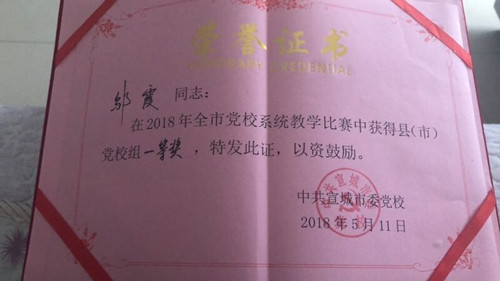 荣誉证书
HONORARY CREDENTIAL
邬霞 同志:
在2018年全市党校系统教学比赛中获得县(市)
党校组一等奖,特发此证,以资鼓励。
中共宣城市委党校
2018年5月11日